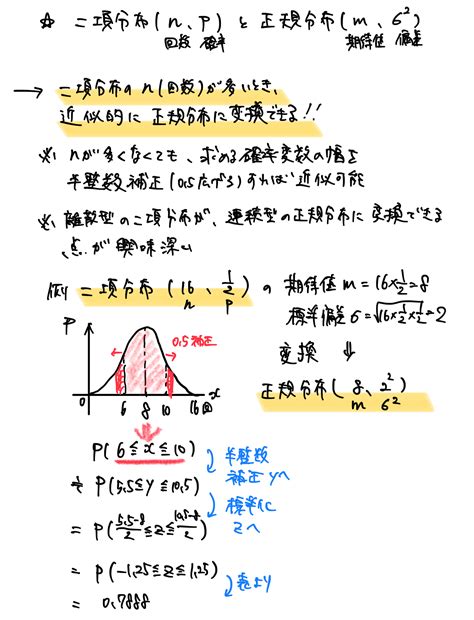 ☆ 二項分布(n、p)と正規分布(m、σ²)
回数 確率 期待値 偏差
→ 二項分布のn(回数)が多いとき、
近似的に正規分布に変換できる!!
※ nが多くなくても、求める確率変数の幅を
半整数補正(0.5広げる)すれば近似可能
※ 離散型の二項分布が、連続型の正規分布に変換できる
点が興味深い
例 二項分布(16、1/2)の期待値m=16×1/2=8
n p
標準偏差σ=√16×1/2×1/2=2
変換 ⇓
正規分布(8、2²)
m σ²
P
0.5補正
0 6 8 10 16回 x
P(6≦x≦10)
半整数
補正 yへ
≒P(5.5≦y≦10.5)
標準化
zへ
=P(5.5-8/2≦z≦10.5-8/2)
=P(-1.25≦z≦1.25)
表より
=0.7888